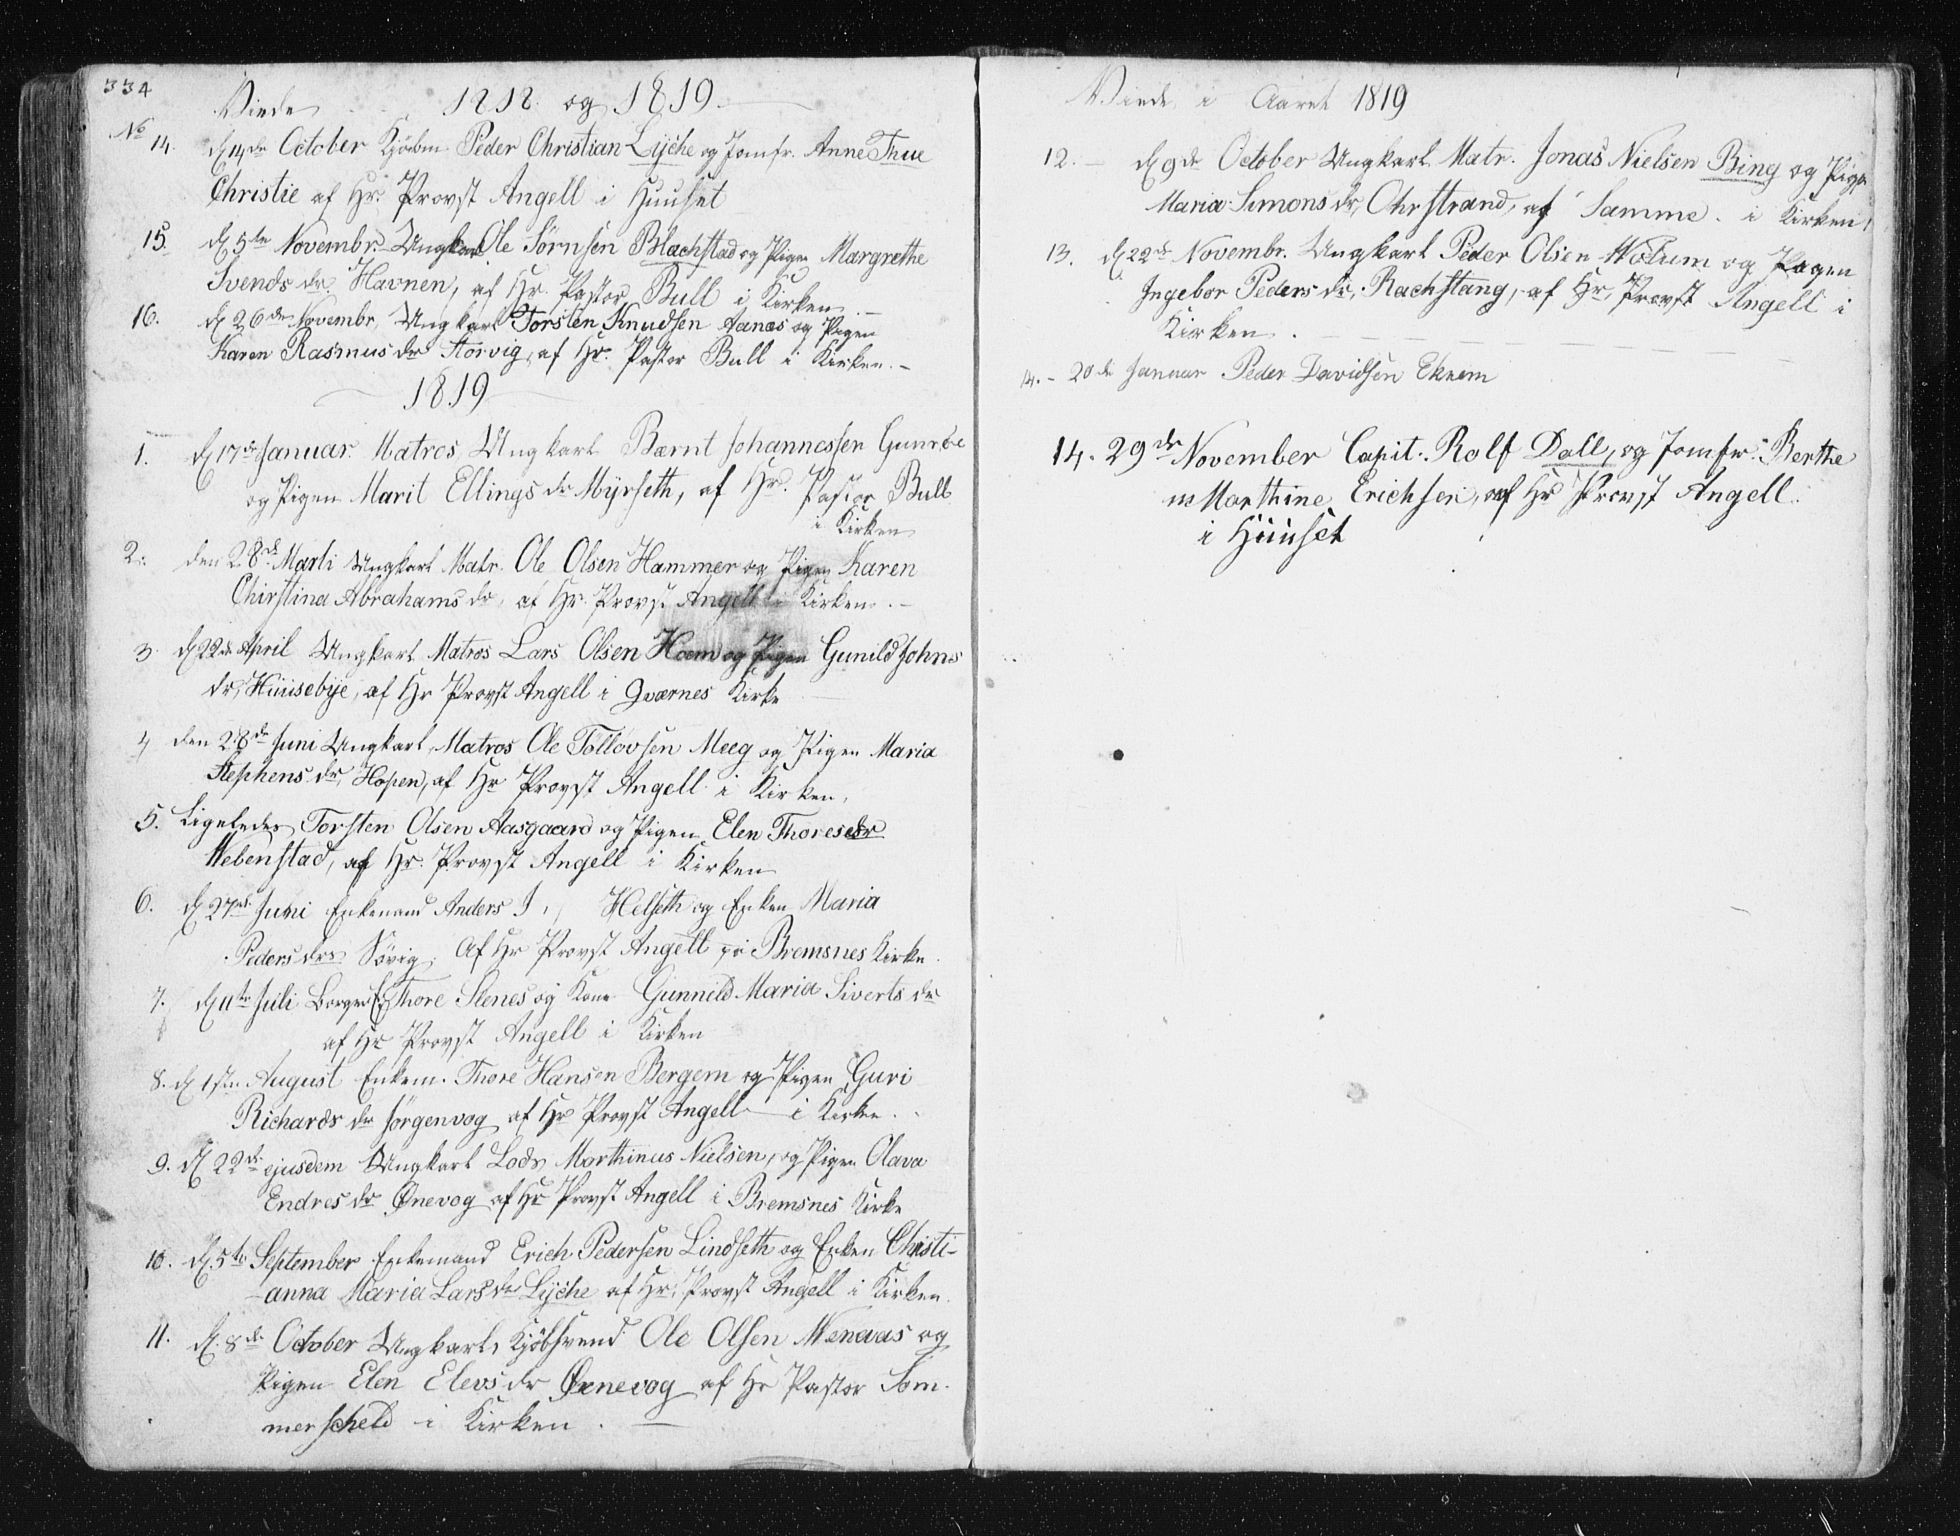 334
Viede 1818 og 1819
No 14. d 14de October Kjöbm. Peder Christian Lyche og Jomfr. Anne Thue
Christie af Hr. Provst Angell i Huuset
15. d 5te Novembr. Ungkarl Ole Sørnsen Blachstad og Pigen Margrethe
Svends dr. Havnen, af Hr. Pastor Bull i Kirken.
16. d 26de Novembr. Ungkarl Torsten Knudsen Aanæs og Pigen
Karen Rasmus dr Storvig, af Hr. Pastor Bull i Kirken. -
1819
1. d 17de Januar. Matros, Ungkarl Bærnt Johannessen Gunröe
og Pigen Marit Ellings dr Myrseth, af Hr. Pastor Bull
i Kirken
2. den 28de Marti Ungkarl Matr. Ole Olsen Hammer og Pigen Karen
Chirstina Abrahams dr, af Hr. Provst Angell i Kirken. -
3. d 22de April Ungkarl Matros Lars Olsen Hoem og Pigen Gunild Johns
dr, Huusebye, af Hr Provst Angell i Qværnes Kirke
4 den 28de Juni Ungkarl, Matros Ole Tølløvsen Meeg og Pigen Maria
Stephens dr, Hopen, af Hr Provst Angell i Kirken,
5. Ligeledes Torsten Olsen Aasgaard og Pigen Elen Thores dr
Webenstad, af Hr. Provst Angell i Kirken
6. d 27de Juni Enkemand Anders J. Helseth og Enken Maria
Peders drs Søvig. Af Hr Provst Angell paa Bremsnes Kirke.
7. d 11te Juli Borger Thore Stenes og Kone Gunnild Maria Siverts dr
af Hr Provst Angell i Kirken
8. d 1ste August Enkem. Thore Hansen Bergem og Pigen Guri
Richards dr Jørgenvog af Hr Provst Angell - i Kirken.
9. d 22de ejusdem Ungkarl Lods Morthinus Nielsen, og Pigen Olava
Endres dr Ønevog af Hr Provst Angell i Bremsnes Kirke
10. d. 5te September Enkemand Erich Pedersen Lindseth og Enken Christi-
-anna Maria Lars dr Lyche af Hr. Provst Angell i Kirken.
11. d. 8de October Ungkarl, Kjöbsvend Ole Olsen Wenaas og
Pigen Elen Elevs dr Ørnevog af Hr Pastor Som-
merscheld i Kirken. -
Viede i Aaret 1819
12. - d 9de October Ungkarl Matr. Jonas Nielsen Bing og Pigen
Maria Simons dr, Ohrstrand, af Samme. i Kirken,
13. d 22de Novembr. Ungkarl Peder Olsen Wolum og Pigen
Ingebor Peders dr, Rachstang, af Hr. Provst Angell i
Kirken.
14. - 20de Januar Peder Davidsen Eknem
14. 29de November Capit. Rolf Dall, og Jomfru Berthe
Marthine Erichsen, af Hr Provst Angell.
i Huuset